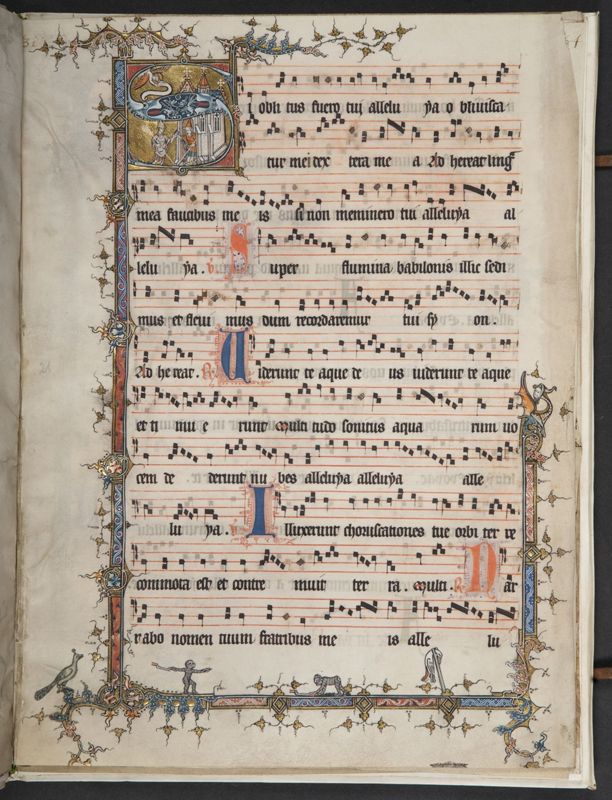 Si obli tus fuero tui allelu ya o bliuisca
tur mei dex tera me a Ad hereat ling
mea faucibus me is si non meminero tui alleluya al
lelu ya . Super flumina babilonis illic sedi
mus et fleui mus dum recordaremur tui sy on
Ad he reat . Uiderunt te aque de us uiderunt te aque
et ti mu e runt multi tudo sonitus aqua rum uo
cem de derunt nu bes alleluya alleluya alle
lu ya . Illuxerunt choruscationes tue orbi ter re
commota est et contre muit ter ra . multi . Nar
rabo nomen tuum fratribus me is alle lu